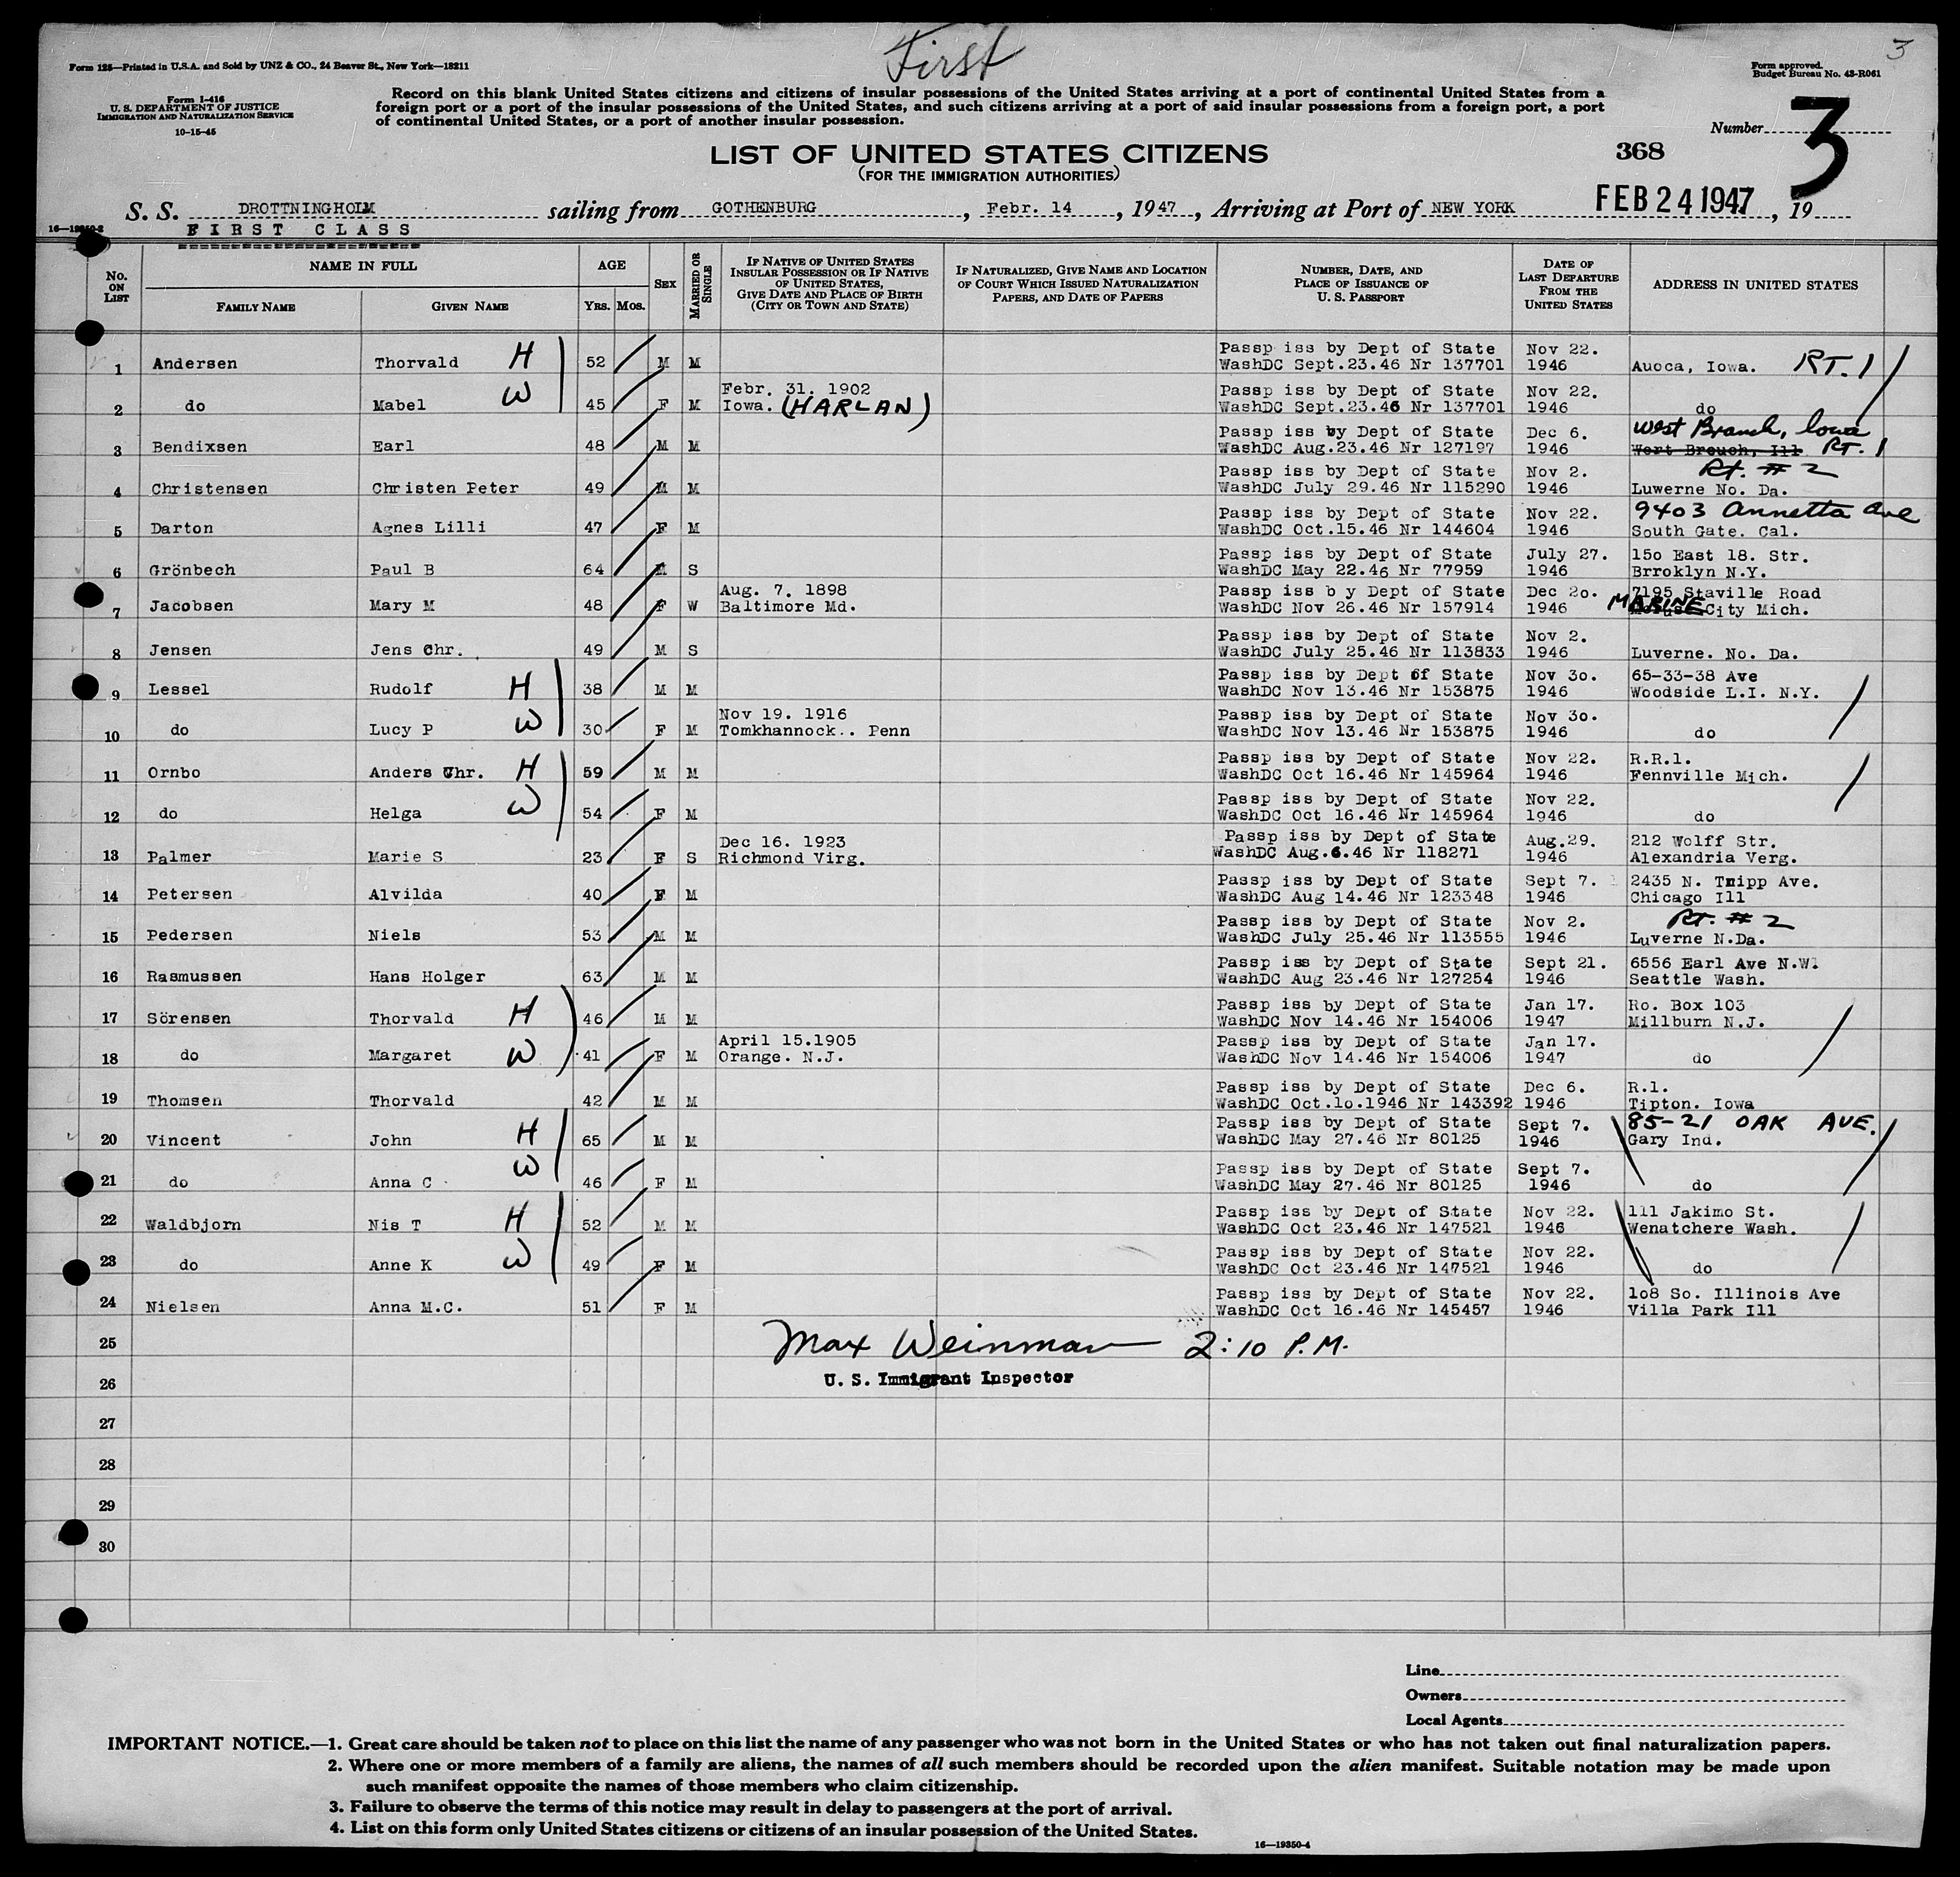 First
3
Form 125—Printed in U.S.A. and Sold by UNZ & CO., 24 Beaver St., New York—18211
Form approved.
Budget Bureau No. 43-R061
Form I-416
U. S. DEPARTMENT OF JUSTICE
IMMIGRATION AND NATURALIZATION SERVICE
10-15-45
Record on this blank United States citizens and citizens of insular possessions of the United States arriving at a port of continental United States from a
foreign port or a port of the insular possessions of the United States, and such citizens arriving at a port of said insular possessions from a foreign port, a port
of continental United States, or a port of another insular possession.
Number 3
LIST OF UNITED STATES CITIZENS
368
(FOR THE IMMIGRATION AUTHORITIES)
S. S. DROTTNINGHOLM sailing from GOTHENBURG, Febr. 14, 1947, Arriving at Port of NEW YORK FEB 24 1947, 19
16—19350-2
FIRST CLASS
No. ON LIST
NAME IN FULL
FAMILY NAME
GIVEN NAME
AGE
YRS. MOS.
SEX
MARRIED OR SINGLE
IF NATIVE OF UNITED STATES
INSULAR POSSESSION OR IF NATIVE
OF UNITED STATES,
GIVE DATE AND PLACE OF BIRTH
(CITY OR TOWN AND STATE)
IF NATURALIZED, GIVE NAME AND LOCATION
OF COURT WHICH ISSUED NATURALIZATION
PAPERS, AND DATE OF PAPERS
NUMBER, DATE, AND
PLACE OF ISSUANCE OF
U. S. PASSPORT
DATE OF
LAST DEPARTURE
FROM THE
UNITED STATES
ADDRESS IN UNITED STATES
Passp iss by Dept of State Nov 22.
1 Andersen Thorvald H 52 M M WashDC Sept.23.46 Nr 137701 1946 Auoca, Iowa. RT. 1
Febr. 31. 1902 Passp iss by Dept of State Nov 22.
2 do Mabel W 45 F M Iowa. (HARLAN) WashDC Sept.23.46 Nr 137701 1946 do
Passp iss by Dept of State Dec 6. West Branch, Iowa
3 Bendixsen Earl 48 M M WashDC Aug.23.46 Nr 127197 1946 Wort Brouch, Ill RT. 1
Passp iss by Dept of State Nov 2. Rt. # 2
4 Christensen Christen Peter 49 M M WashDC July 29.46 Nr 115290 1946 Luwerne No. Da.
Passp iss by Dept of State Nov 22. 9403 Annetta Ave
5 Darton Agnes Lilli 47 F M WashDC Oct.15.46 Nr 144604 1946 South Gate. Cal.
Passp iss by Dept of State July 27. 15o East 18. Str.
6 Grönbech Paul B 64 M S WashDC May 22.46 Nr 77959 1946 Brroklyn N.Y.
Aug. 7. 1898 Passp iss b y Dept of State Dec 2o. 7195 Staville Road
7 Jacobsen Mary M 48 F W Baltimore Md. WashDC Nov 26.46 Nr 157914 1946 MARINE City Mich.
Passp iss by Dept of State Nov 2.
8 Jensen Jens Chr. 49 M S WashDC July 25.46 Nr 113833 1946 Luverne. No. Da.
Passp iss by Dept of State Nov 3o. 65-33-38 Ave
9 Lessel Rudolf H 38 M M WashDC Nov 13.46 Nr 153875 1946 Woodside L.I. N.Y.
Nov 19. 1916 Passp iss by Dept of State Nov 3o.
10 do Lucy P W 30 F M Tomkhannock.. Penn WashDC Nov 13.46 Nr 153875 1946 do
Passp iss by Dept of State Nov 22. R.R.l.
11 Ornbo Anders Chr. H 59 M M WashDC Oct 16.46 Nr 145964 1946 Fennville Mich.
Passp iss by Dept of State Nov 22.
12 do Helga W 54 F M WashDC Oct 16.46 Nr 145964 1946 do
Dec 16. 1923 Passp iss by Dept of State Aug.29. 212 Wolff Str.
13 Palmer Marie S 23 F S Richmond Virg. WashDC Aug.6.46 Nr 118271 1946 Alexandria Verg.
Passp iss by Dept of State Sept 7. 2435 N. Tripp Ave.
14 Petersen Alvilda 40 F M WashDC Aug 14.46 Nr 123348 1946 Chicago Ill
Passp iss by Dept of State Nov 2. RT. # 2
15 Pedersen Niels 53 M M WashDC July 25.46 Nr 113555 1946 Luverne N.Da.
Passp iss by Dept of State Sept 21. 6556 Earl Ave N.W.
16 Rasmussen Hans Holger 63 M M WashDC Aug 23.46 Nr 127254 1946 Seattle Wash.
Passp iss by Dept of State Jan 17. Ro. Box 103
17 Sörensen Thorvald H 46 M M WashDC Nov 14.46 Nr 154006 1947 Millburn N.J.
April 15.1905 Passp iss by Dept of State Jan 17.
18 do Margaret W 41 F M Orange. N.J. WashDC Nov 14.46 Nr 154006 1947 do
Passp iss by Dept of State Dec 6. R.l.
19 Thomsen Thorvald 42 M M WashDC Oct.1o.1946 Nr 143392 1946 Tipton. Iowa
Passp iss by Dept of State Sept 7. 85-21 OAK AVE.
20 Vincent John H 65 M M WashDC May 27.46 Nr 80125 1946 Gary Ind.
Passp iss by Dept of State Sept 7.
21 do Anna C W 46 F M WashDC May 27.46 Nr 80125 1946 do
Passp iss by Dept of State Nov 22. 111 Jakimo St.
22 Waldbjorn Nis T H 52 M M WashDC Oct 23.46 Nr 147521 1946 Wenatchere Wash.
Passp iss by Dept of State Nov 22.
23 do Anne K W 49 F M WashDC Oct 23.46 Nr 147521 1946 do
Passp iss by Dept of State Nov 22. 1o8 So. Illinois Ave
24 Nielsen Anna M.C. 51 F M WashDC Oct 16.46 Nr 145457 1946 Villa Park Ill
25 Max Weinman 2:10 P.M.
26 U. S. Immigrant Inspector
27
28
29
30
Line
Owners
Local Agents
IMPORTANT NOTICE.—1. Great care should be taken not to place on this list the name of any passenger who was not born in the United States or who has not taken out final naturalization papers.
2. Where one or more members of a family are aliens, the names of all such members should be recorded upon the alien manifest. Suitable notation may be made upon
such manifest opposite the names of those members who claim citizenship.
3. Failure to observe the terms of this notice may result in delay to passengers at the port of arrival.
4. List on this form only United States citizens or citizens of an insular possession of the United States.
16—19350-4